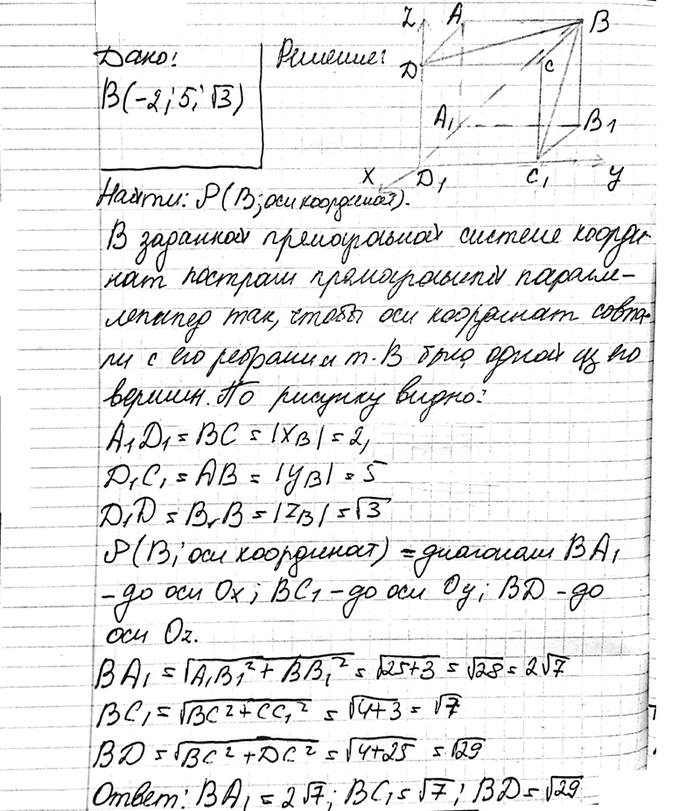 Z A B
Дано: Решение:
D C
B(-2; 5; √3)
A₁ B₁
X D₁ C₁ y
Найти: ρ(B; оси координат).
В заданной прямоугольной системе коорди-
нат построим прямоугольный паралле-
лепипед так, чтобы оси координат совпа-
ли с его ребрами и т. В была одной из его
вершин. По рисунку видно:
A₁D₁ = BC = |x_B| = 2,
D₁C₁ = AB = |y_B| = 5
D₁D = B₁B = |z_B| = √3
ρ(B; оси координат) = диагонали BA₁
- до оси Ox; BC₁ - до оси Oy; BD - до
оси Oz.
BA₁ = √(A₁B₁² + BB₁²) = √(25+3) = √28 = 2√7
BC₁ = √(BC² + CC₁²) = √(4+3) = √7
BD = √(BC² + DC²) = √(4+25) = √29
Ответ: BA₁ = 2√7; BC₁ = √7; BD = √29